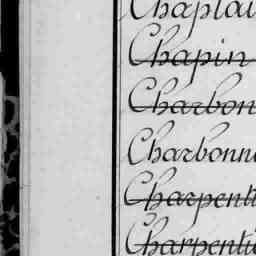 Chaplai
Chapin
Charbon
Charbonn
Charpenti
Charpentie